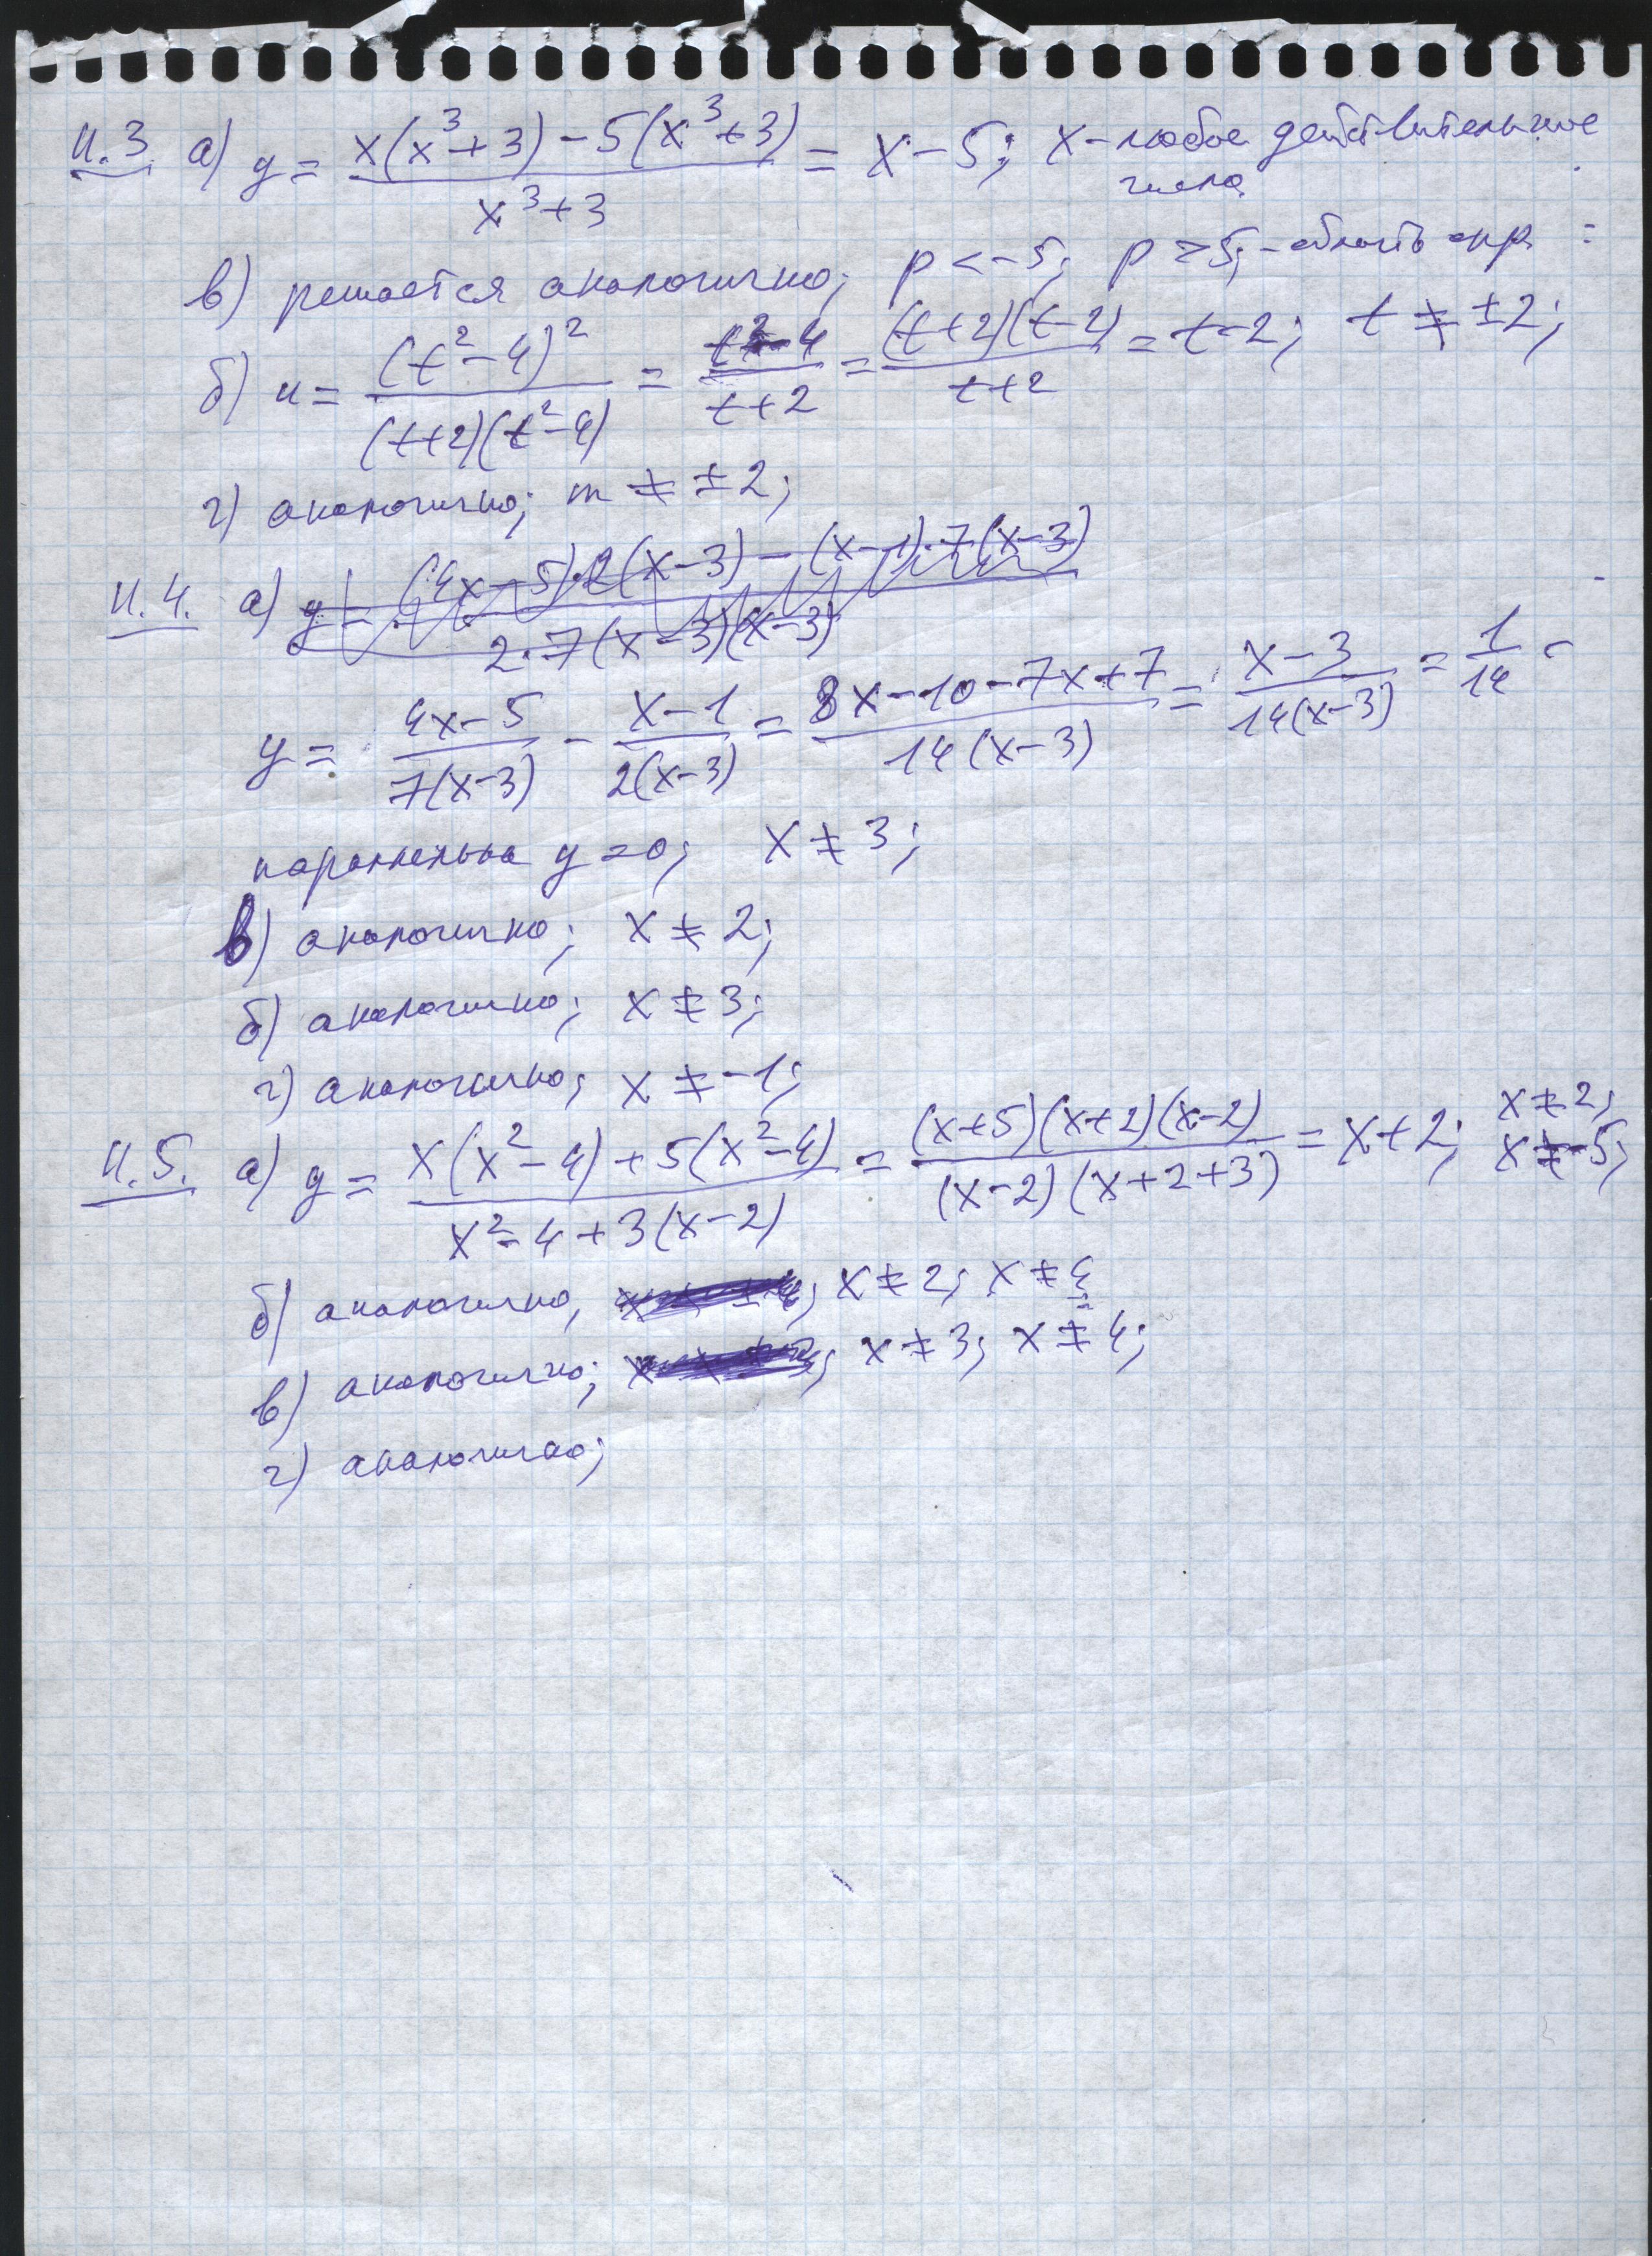 И.3. а) y = (x(x³+3) − 5(x³+3))/(x³+3) = x − 5; x – любое действительное
число
в) решается аналогично; p < −5; p ≥ 5; – область опр.
б) u = (t²−4)²/((t+2)(t²−4)) = (t²−4)/(t+2) = ((t+2)(t−2))/(t+2) = t−2; t ≠ ±2;
г) аналогично; m ≠ ±2;
И.4. а) y = ((4x−5)·2(x−3) − (x−1)·7(x−3))/(2·7(x−3)(x−3))
y = (4x−5)/(7(x−3)) − (x−1)/(2(x−3)) = (8x−10−7x+7)/(14(x−3)) = (x−3)/(14(x−3)) = 1/14 –
параллельна y=0; x ≠ 3;
в) аналогично; x ≠ 2;
б) аналогично; x ≠ 3;
г) аналогично; x ≠ −1;
И.5. а) y = (x(x²−4)+5(x²−4))/(x²−4+3(x−2)) = ((x+5)(x+2)(x−2))/((x−2)(x+2+3)) = x+2; x ≠ 2; x ≠ −5;
б) аналогично; x ≠ 2; x ≠
в) аналогично; x ≠ 3; x ≠ 4;
г) аналогично;